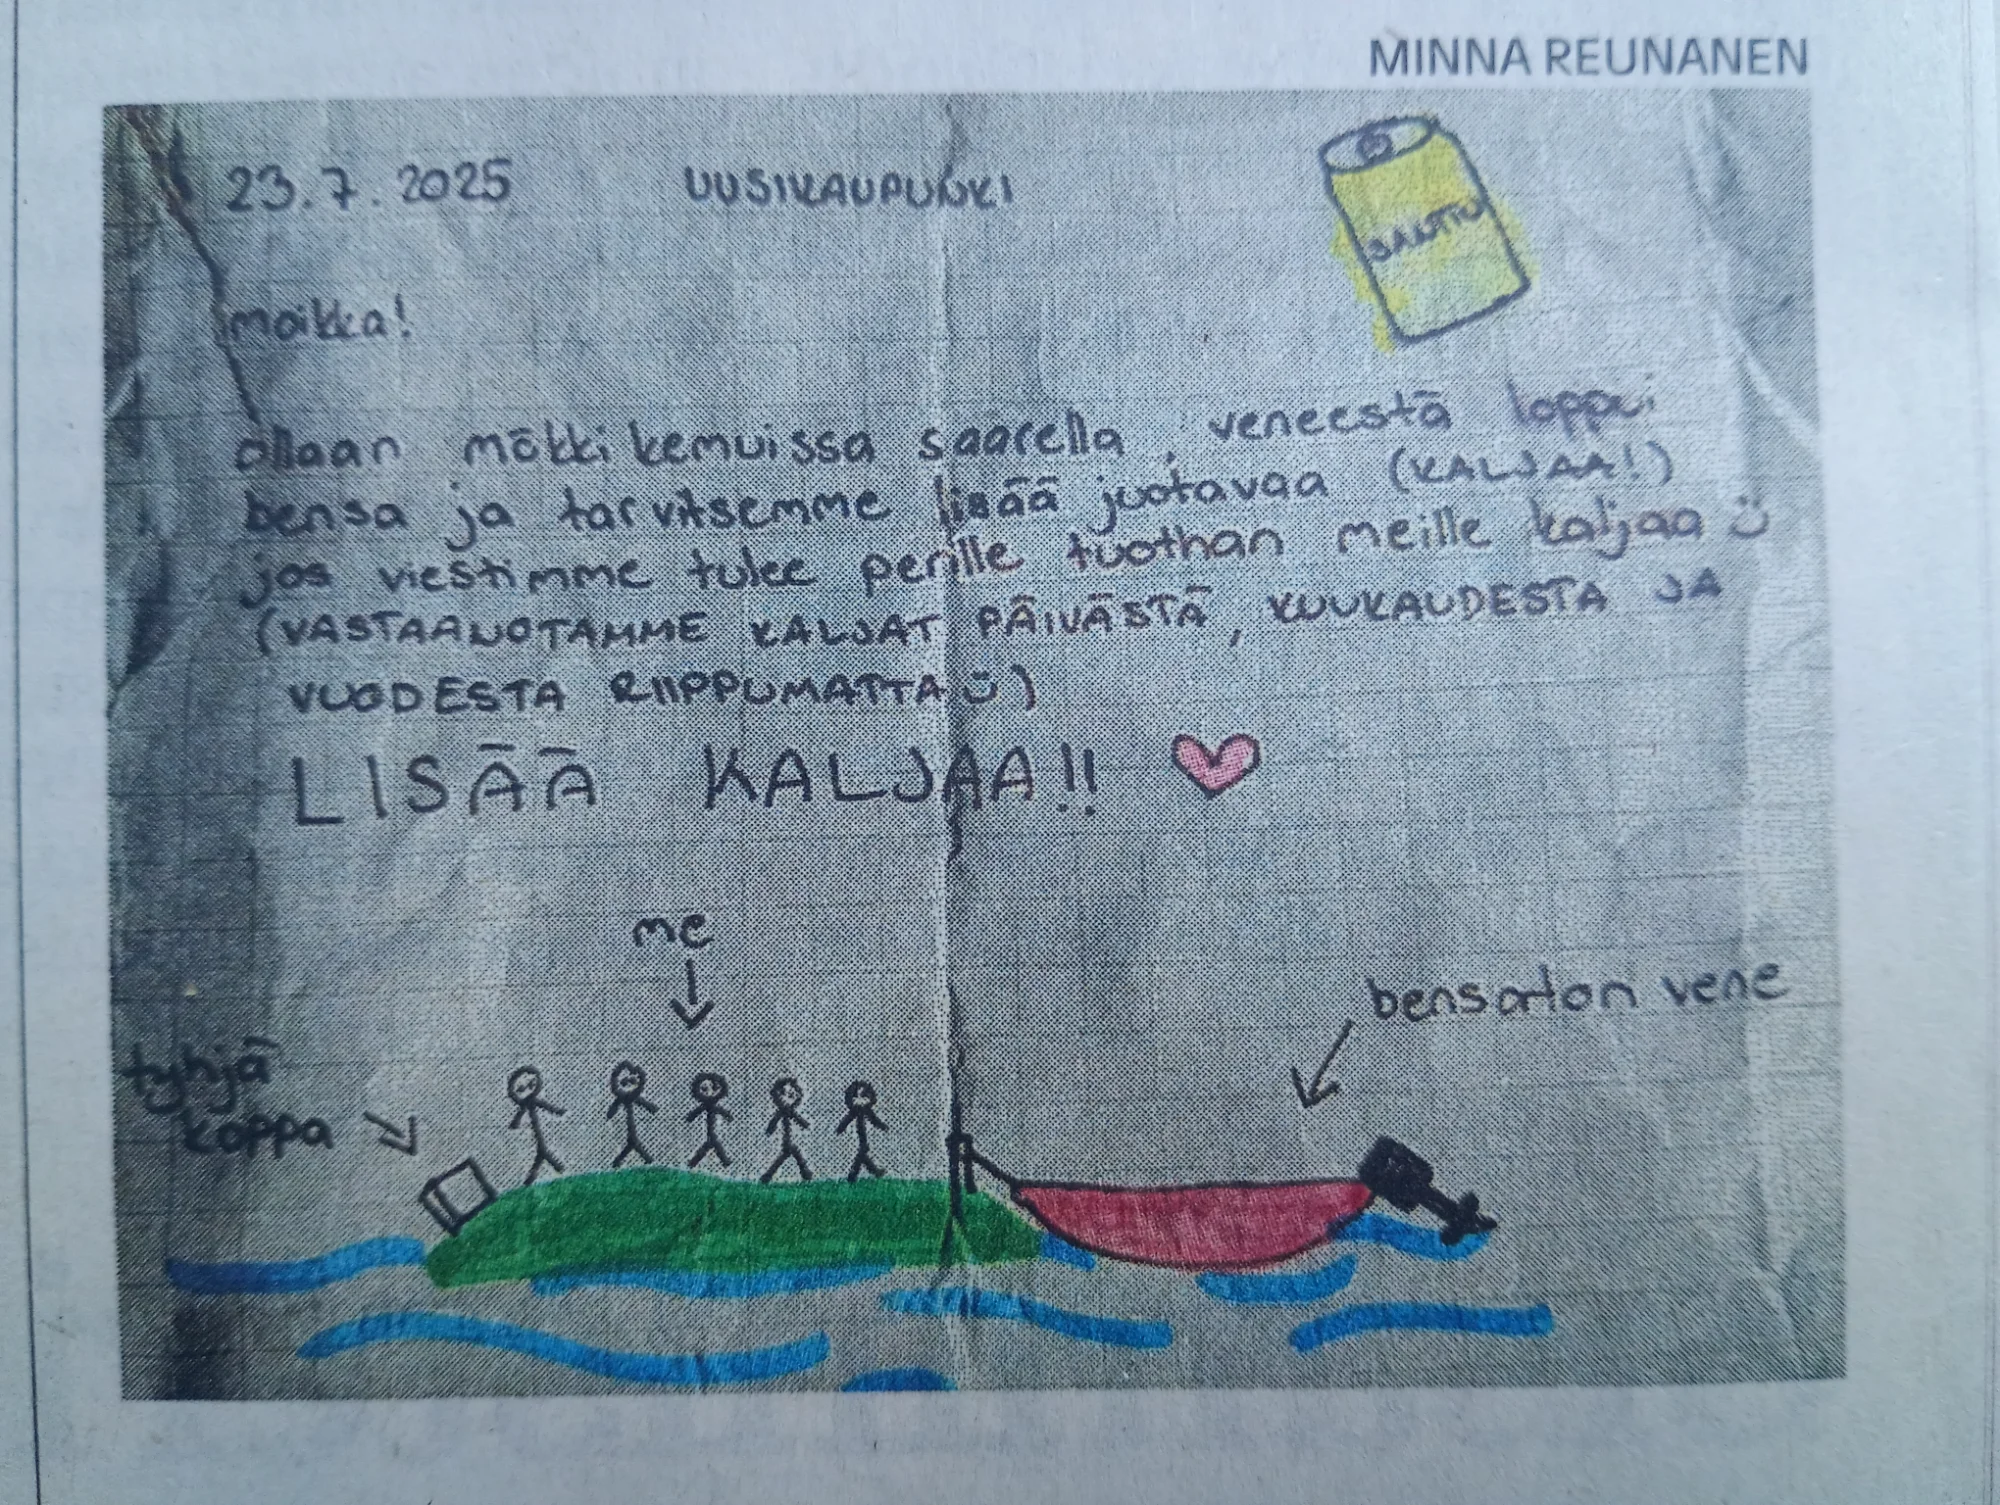 MINNA REUNANEN
23.7.2025 UUSIKAUPUNKI
SANTTU
moikka!
ollaan mökkikemuissa saarella, veneestä loppui
bensa ja tarvitsemme lisää juotavaa (KALJAA!)
jos viestimme tulee perille tuothan meille kaljaa :)
(VASTAANOTAMME KALJAT PÄIVÄSTÄ, KUUKAUDESTA JA
VUODESTA RIIPPUMATTA :))
LISÄÄ KALJAA!! ♥
me
bensaton vene
tyhjä
koppa